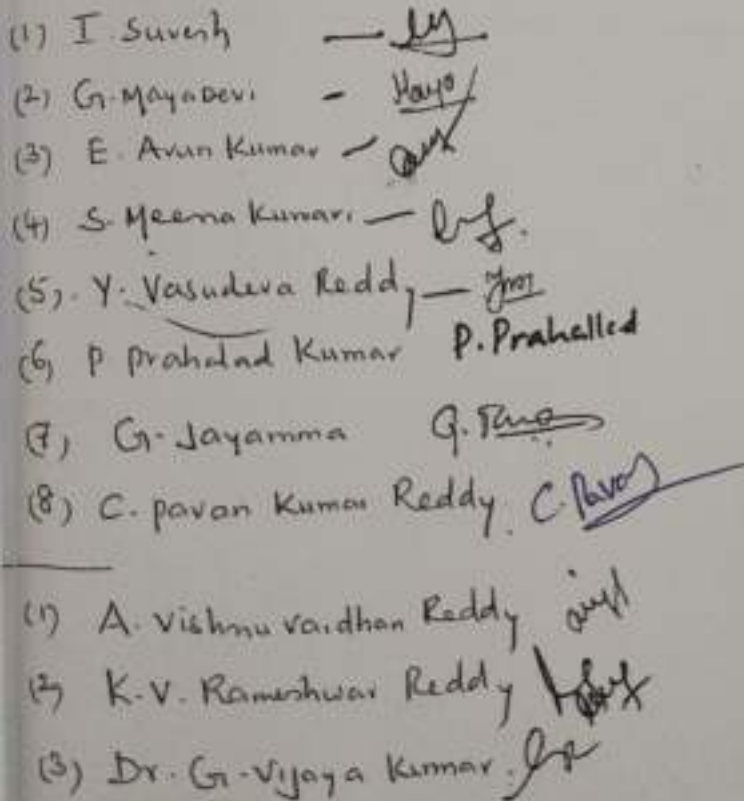 (1) I. Suresh —
(2) G. Maya Devi - Maya
(3) E. Arun Kumar -
(4) S. Meena Kumari —
(5). Y. Vasudeva Reddy —
(6) P Prahalad Kumar P. Prahalled
(7) G. Jayamma G.
(8) C. Pavan Kumar Reddy. C. Pavan
(1) A. Vishnu Vardhan Reddy
(2) K.V. Rameshwar Reddy
(3) Dr. G. Vijaya Kumar.